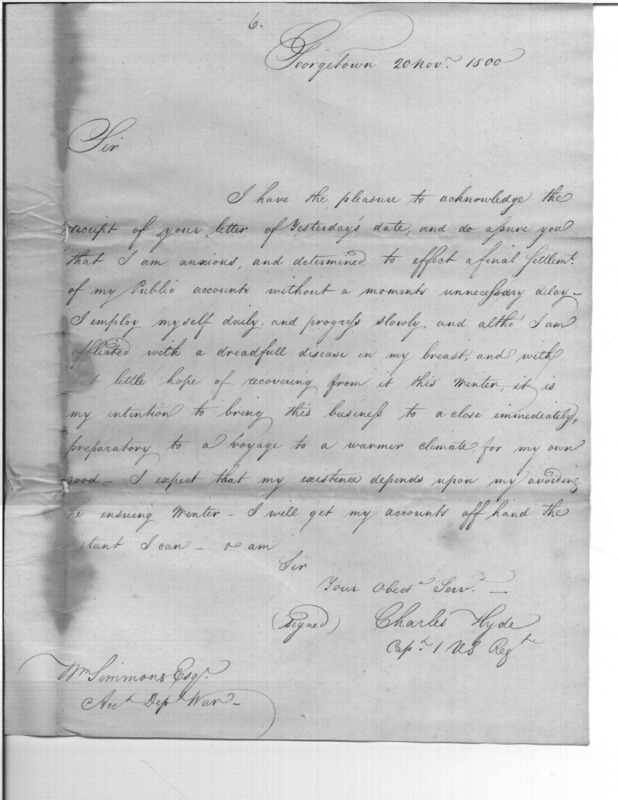 6.
Georgetown 20 Novr. 1800
Sir
I have the pleasure to acknowledge the
receipt of your letter of Yesterday's date, and do assure you
that I am anxious, and determined to effect a final Settlemt.
of my Public accounts without a moments unnecessary delay –
I employ myself daily, and progress slowly, and altho' I am
afflicted with a dreadfull disease in my breast, and with
but little hope of recovering from it this Winter, it is
my intention to bring this business to a close immediately,
preparatory to a Voyage to a warmer climate for my own
good – I expect that my existence depends upon my avoiding
the ensuing Winter – I will get my accounts off hand the
instant I can – & am
Sir
Your Obedt. Servt. –
(signed) Charles Hyde
Capn. 1 US Regt.
Wm Simmons Esqr.
Acct. Dept. War –